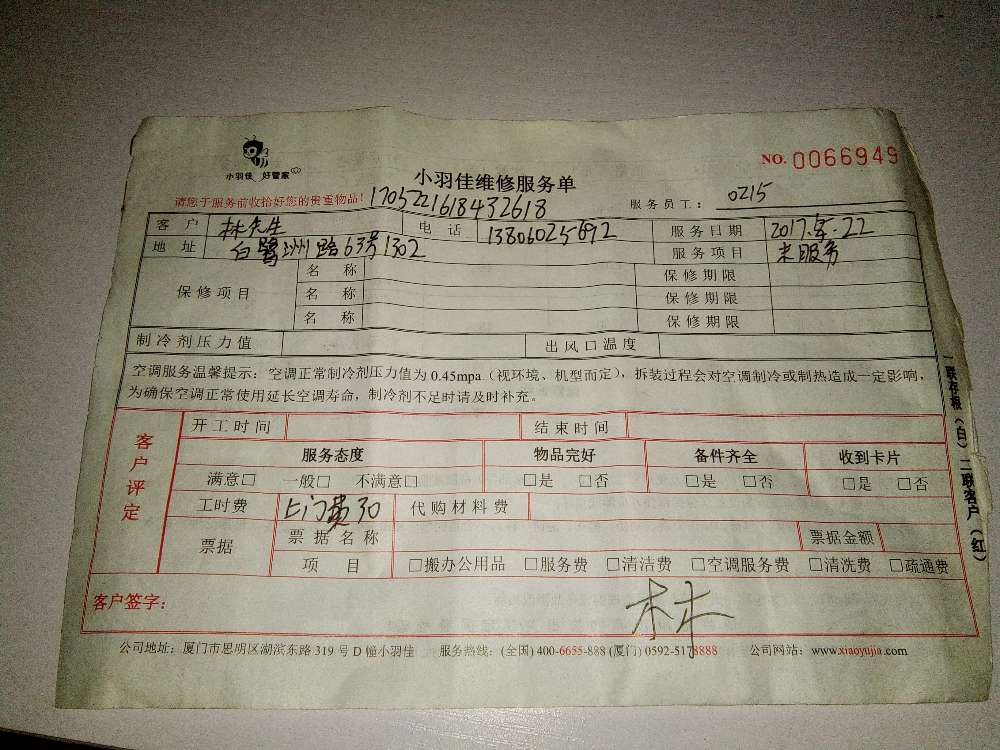 小羽佳 好管家
NO. 0066949
小羽佳维修服务单
请您于服务前收拾好您的贵重物品! 170522161843 2618
服务员工: 0215
客户 林先生 电话 13806025692 服务日期 2017.年.22
地址 白鹭洲路63号1302 服务项目 未服务
保修项目 名称 保修期限
名称 保修期限
名称 保修期限
制冷剂压力值 出风口温度
空调服务温馨提示: 空调正常制冷剂压力值为 0.45mpa (视环境、机型而定), 拆装过程会对空调制冷或制热造成一定影响,
为确保空调正常使用延长空调寿命, 制冷剂不足时请及时补充。
客户评定
开工时间 结束时间
服务态度 物品完好 备件齐全 收到卡片
满意□ 一般□ 不满意□ □是 □否 □是 □否 □是 □否
工时费 上门费30 代购材料费
票据 票据名称 票据金额
项目 □搬办公用品 □服务费 □清洁费 □空调服务费 □清洗费 □疏通费
客户签字: 林
公司地址: 厦门市思明区湖滨东路 319 号 D 幢小羽佳 服务热线: (全国) 400-6655-888 (厦门) 0592-5178888 公司网站: www.xiaoyujia.com
一联存根(白) 二联客户(红)